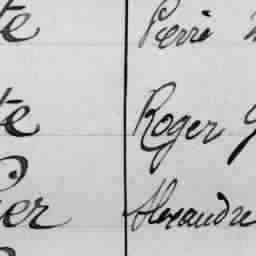 te Pierre
te Roger
er Alexandre